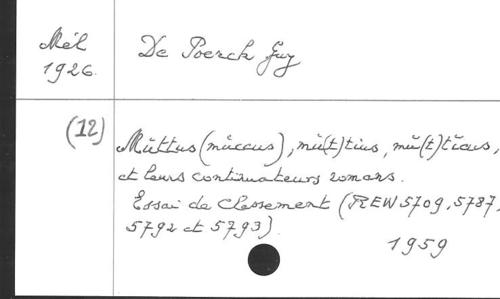 Mél
1926.
De Poerck Guy
(12)
Mŭttus (mŭccus), mŭ(t)tius, mŭ(t)tĭcus,
et leurs continuateurs romans.
Essai de Classement (REW 5709, 5787,
5792 et 5793).
1959